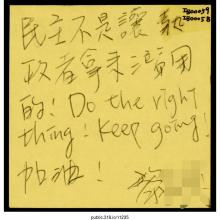 IY00059
IY00058
民主不是讓執
政者拿來濫用
的! Do the right
thing! Keep going!
加油!
蔡
public.318.io/11235